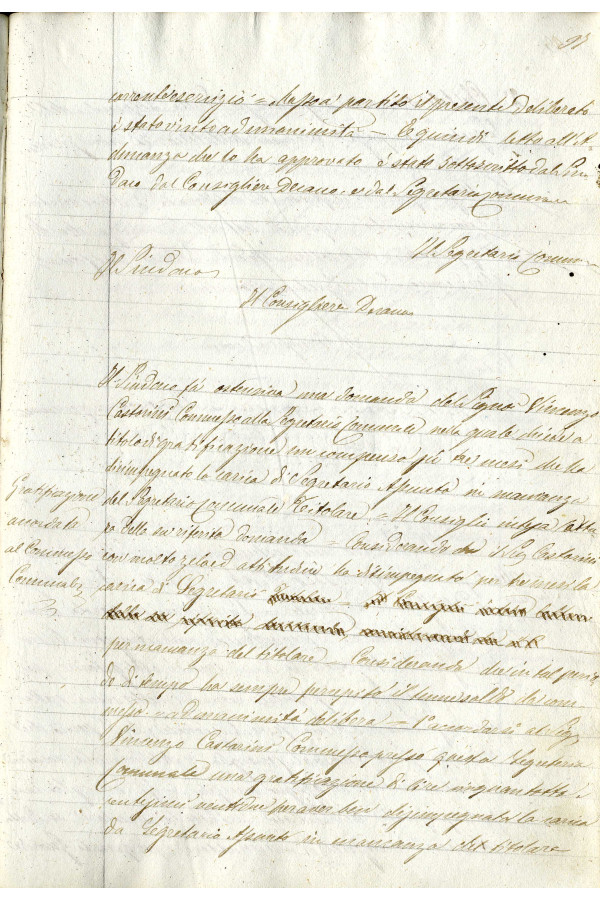 servizio = Messo a partito il presente deliberato
è stato vinto ad unanimità — E quindi letto all'a-
dunanza che lo ha approvato è stato sottoscritto dal Sin-
daco dal Consigliere Decano e dal Segretario comunale
Il Segretario Comun
Il Sindaco
Il Consigliere Decano
Il Sindaco fa ostensiva una domanda del Signor Vincenzo
Castarini Commesso alla Segreteria Comunale nella quale chiede a
titolo di gratificazione un compenso più tre mesi che ha
disimpegnato la carica di Segretario Assunto in mancanza
del Segretario Comunale Titolare = Il Consiglio intesa
riferita domanda = Considerando che il Sig Castarini
con molto zelo ed attitudine ha disimpegnato per tre mesi la
carica di Segretario
per mancanza del titolare — Considerando che in tal perio-
do di tempo ha sempre percepito il suo soldo da com-
messo = ad unanimità delibera = accordarsi al Sig
Vincenzo Castarini Commesso presso questa Segreteria
Comunale una gratificazione di lire cinquantotto e
centesimi ventidue per aver ben disimpegnata la carica
da Segretario Assunto in mancanza del titolare
Gratificazione
accordata
al Commesso
Comunale